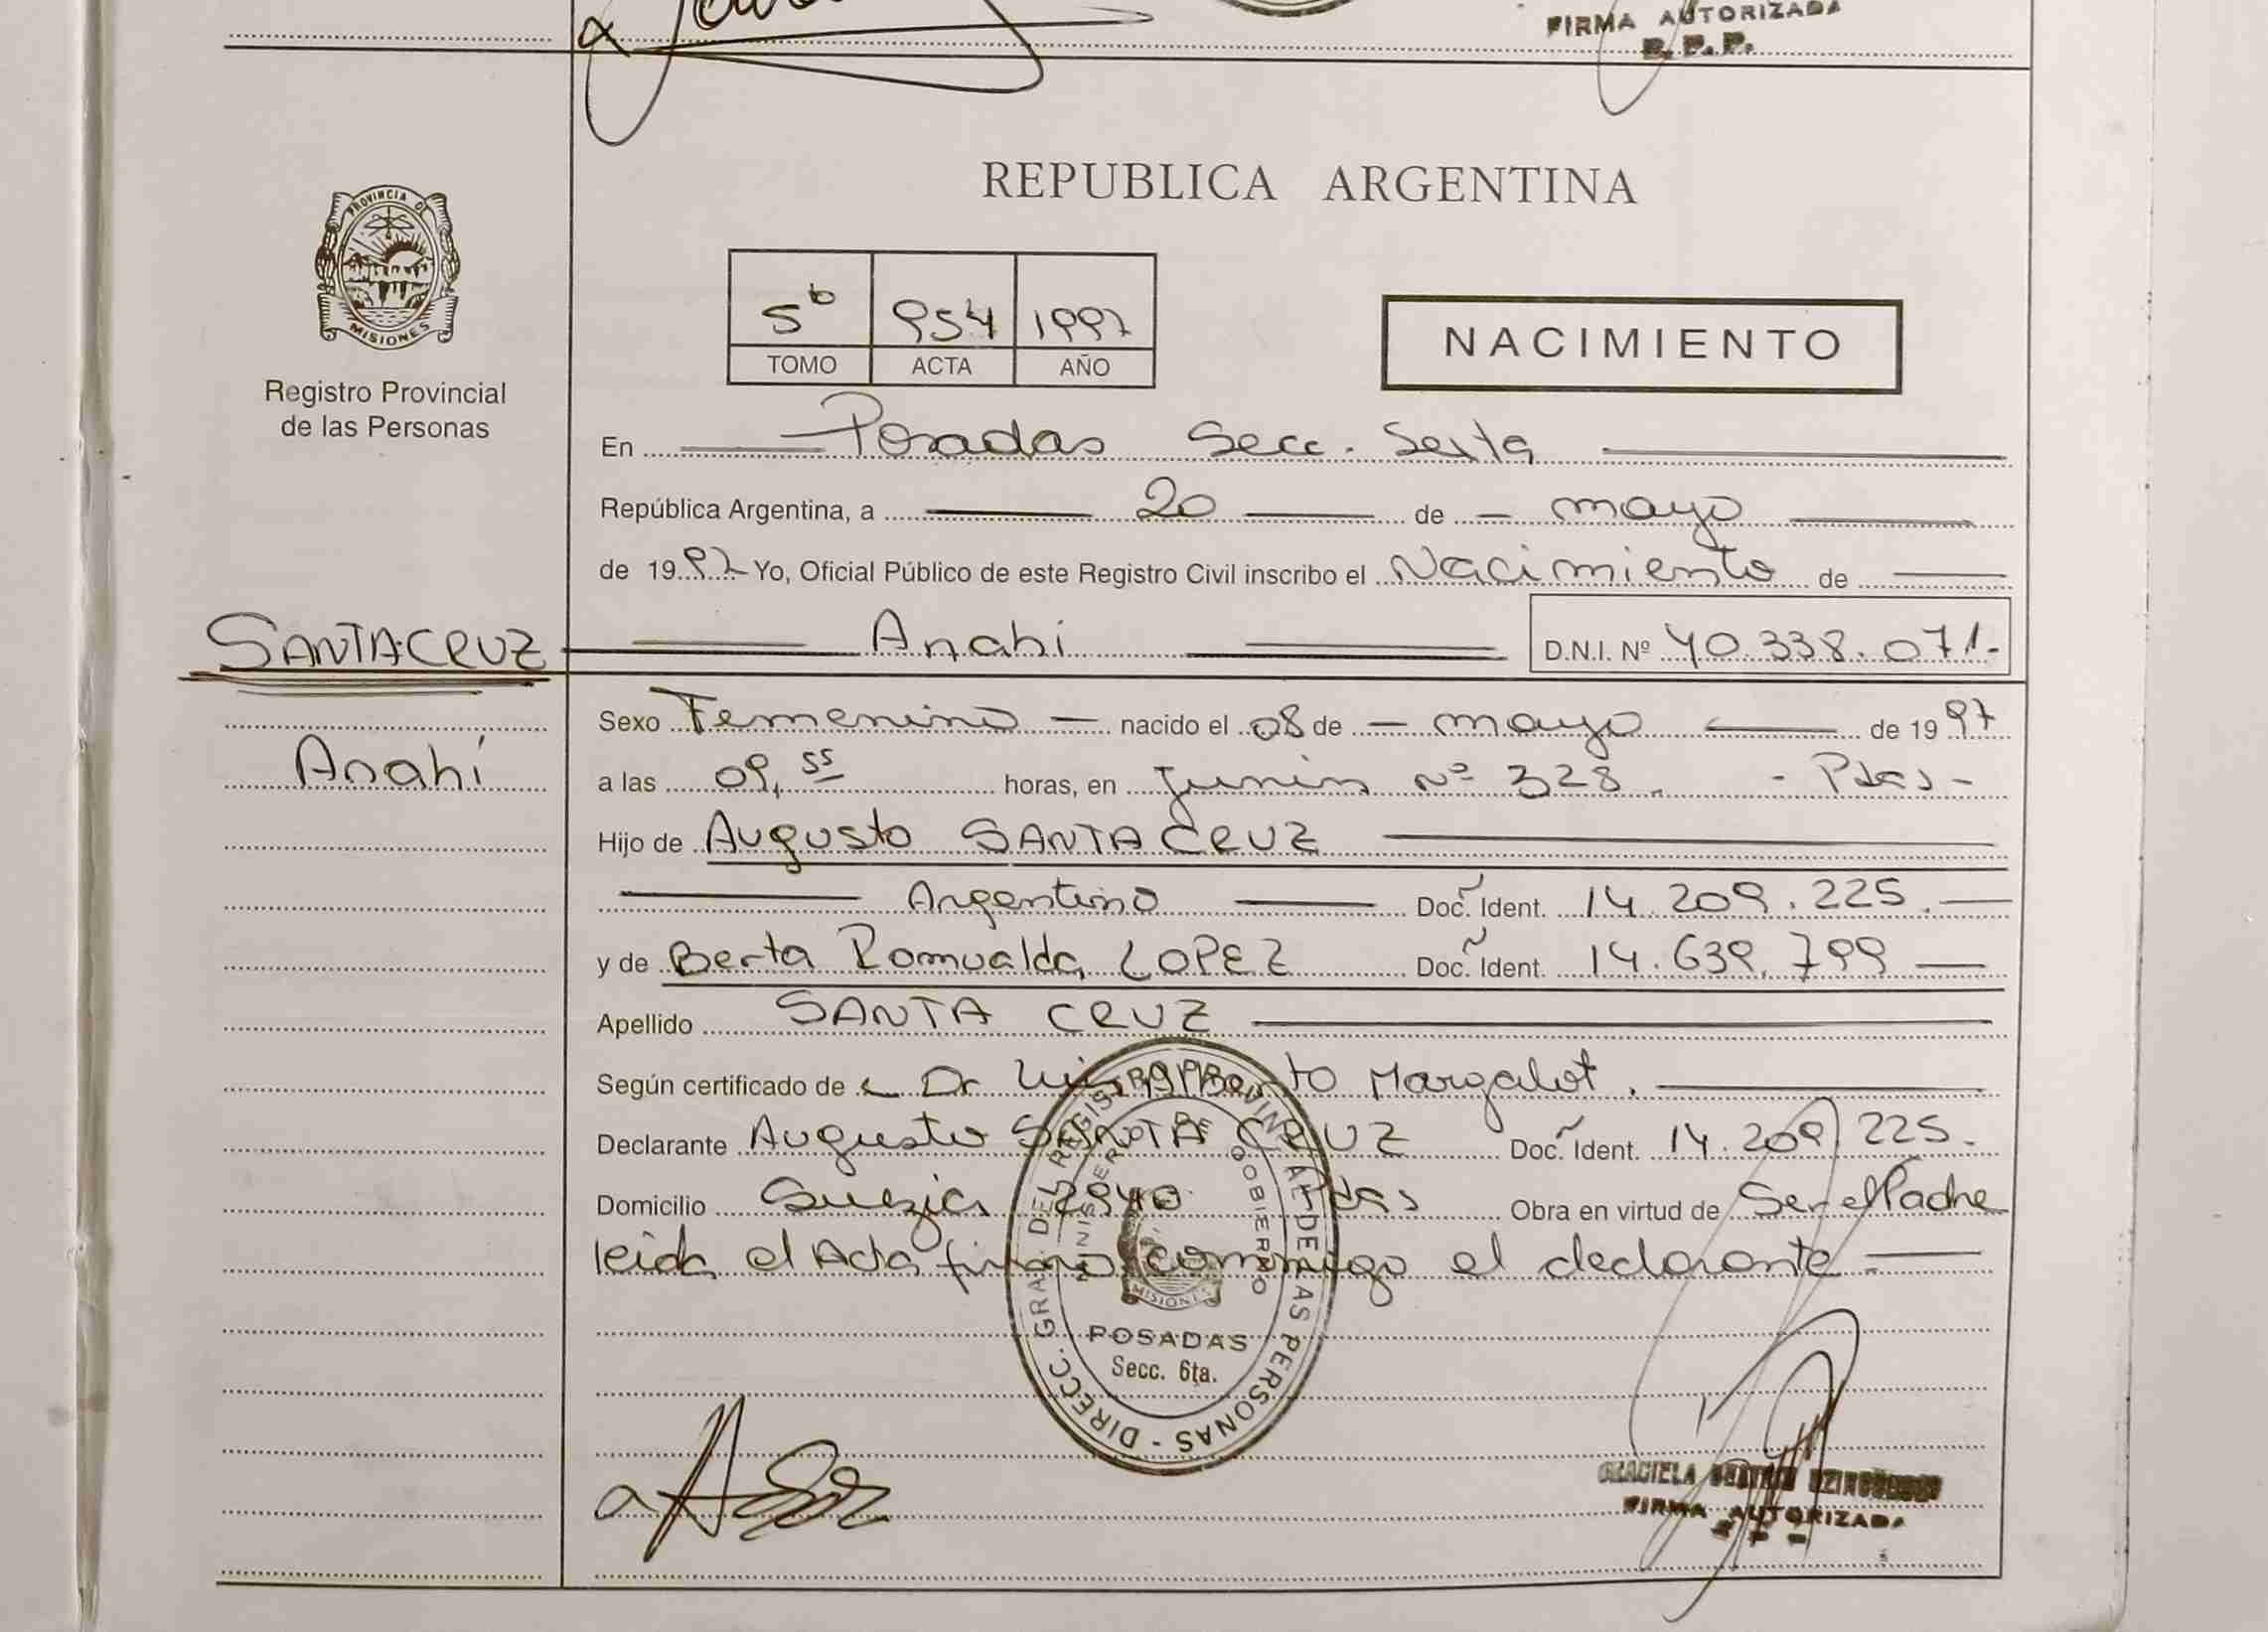 FIRMA AUTORIZADA
R. P. P.
PROVINCIA DE
MISIONES
Registro Provincial
de las Personas
REPUBLICA ARGENTINA
5b 954 1997
TOMO ACTA AÑO
NACIMIENTO
En Posadas Secc. Sexta
República Argentina, a 20 de mayo
de 1997 Yo, Oficial Público de este Registro Civil inscribo el Nacimiento de
SANTA CRUZ Anahi D.N.I. Nº 40.338.071.-
Sexo Femenino nacido el 08 de mayo de 1997
Anahí
a las 09,55 horas, en Junin Nº 328. - Pdas -
Hijo de Augusto SANTA CRUZ
Argentino Doc. Ident. 14.209.225.
y de Berta Romualda LOPEZ Doc. Ident. 14.639.799
Apellido SANTA CRUZ
Según certificado de Dr Luis Alberto Margalot.
Declarante Augusto SANTA CRUZ Doc. Ident. 14.209.225.
Domicilio Suecia 2940 Pdas Obra en virtud de Ser el Padre
leida el Acta firma conmigo el declarante.
DIRECC. GRAL. DEL REGISTRO PROVINCIAL DE LAS PERSONAS -
MINISTERIO DE GOBIERNO
MISIONES
POSADAS
Secc. 6ta.
GRACIELA
FIRMA AUTORIZADA